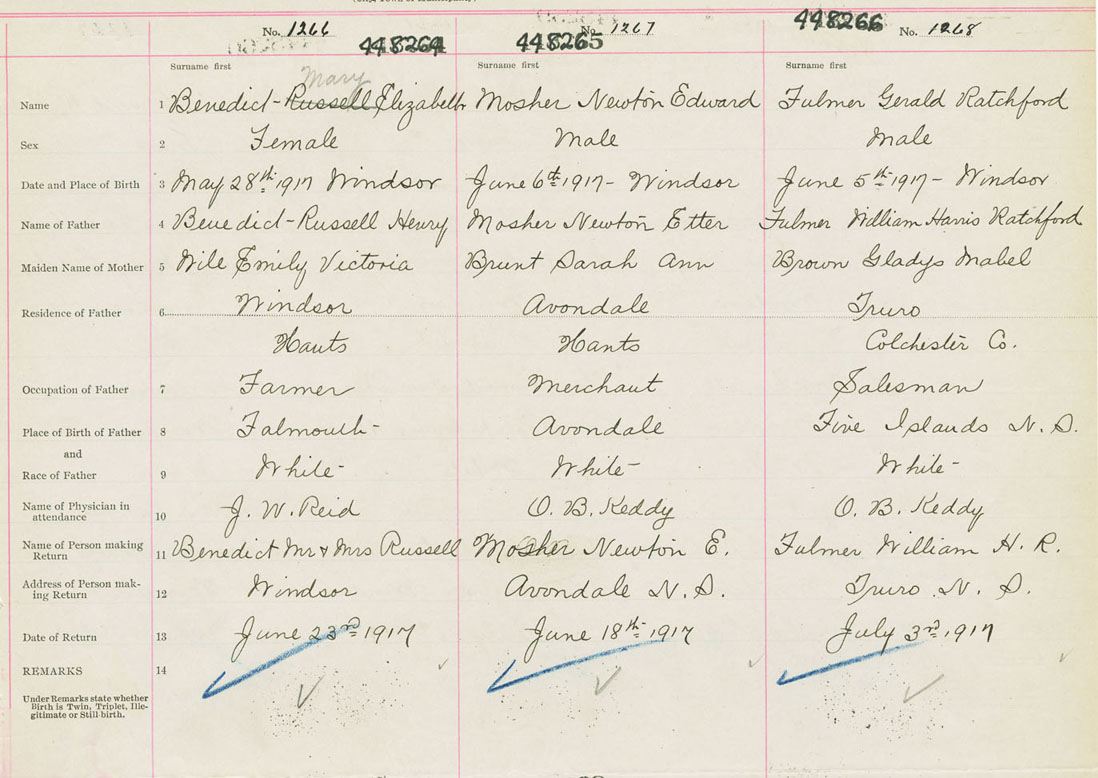 No. 1266 448264 448265 No. 1267 448266 No. 1268
Surname first Surname first Surname first
Mary
Name 1 Benedict Russell Elizabeth Mosher Newton Edward Fulmer Gerald Ratchford
Sex 2 Female Male Male
Date and Place of Birth 3 May 28th 1917 Windsor June 6th 1917 - Windsor June 5th 1917 - Windsor
Name of Father 4 Benedict - Russell Henry Mosher Newton Etter Fulmer William Harris Ratchford
Maiden Name of Mother 5 Wile Emily Victoria Brunt Sarah Ann Brown Gladys Mabel
Residence of Father 6 Windsor Avondale Truro
Hants Hants Colchester Co.
Occupation of Father 7 Farmer Merchant Salesman
Place of Birth of Father 8 Falmouth Avondale Five Islands N. S.
and
Race of Father 9 White White White
Name of Physician in
attendance 10 J. W. Reid O. B. Keddy O. B. Keddy
Name of Person making
Return 11 Benedict Mr & Mrs Russell Mosher Newton E. Fulmer William H. R.
Address of Person mak-
ing Return 12 Windsor Avondale N. S. Truro N. S.
Date of Return 13 June 23rd 1917 June 18th 1917 July 3rd 1917
REMARKS 14
Under Remarks state whether
Birth is Twin, Triplet, Ille-
gitimate or Still birth.